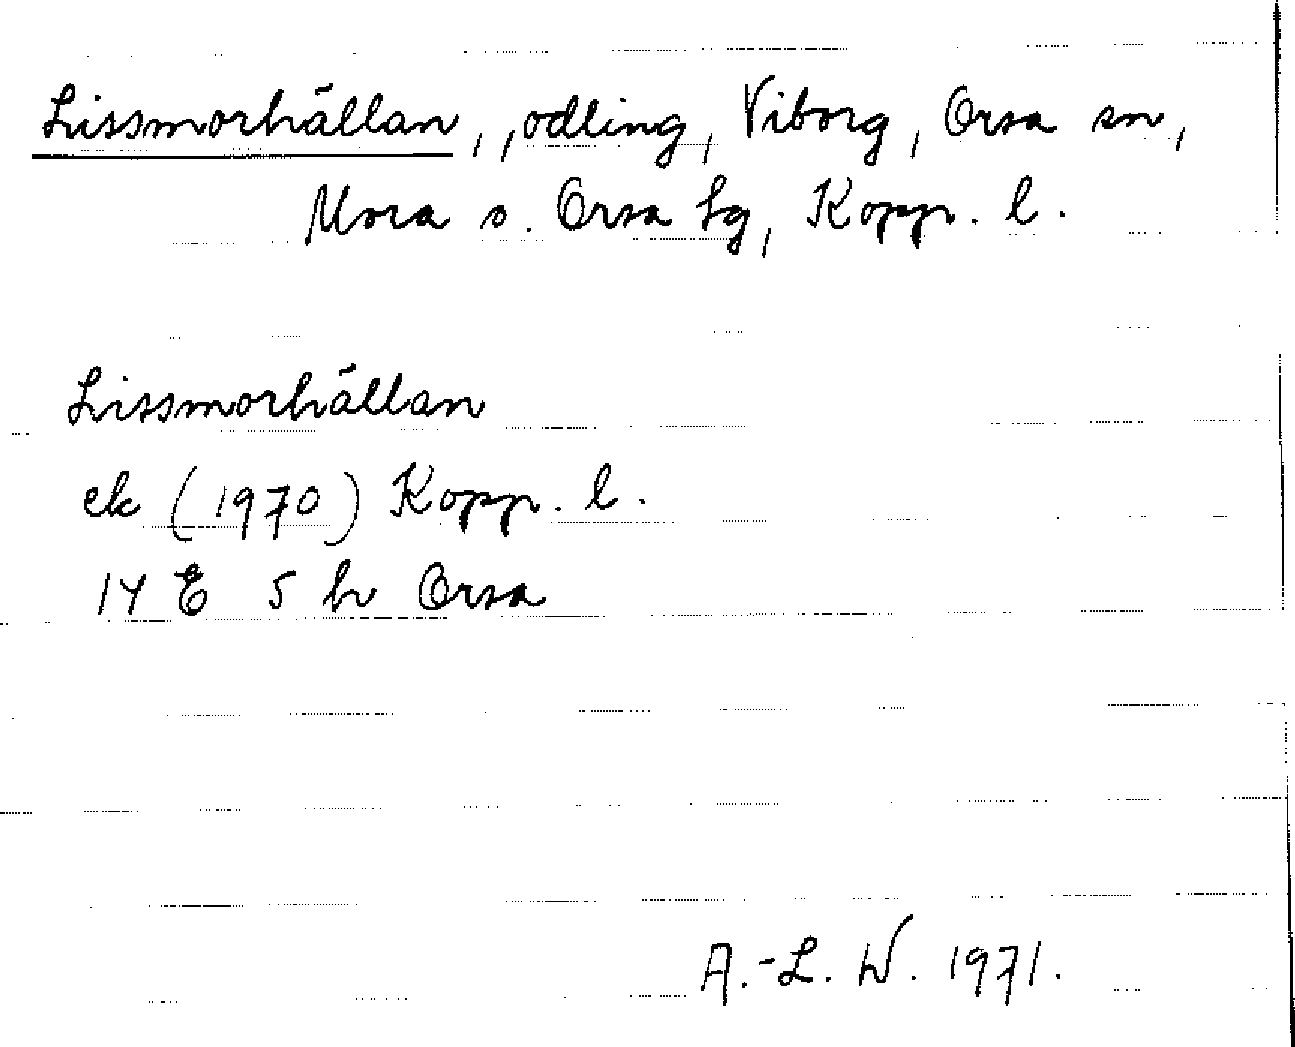 Lissmorhällan, , odling, Viborg, Orsa sn,
Mora o. Orsa tg, Kopp. l.
Lissmorhällan
ek (1970) Kopp. l.
14 E 5 h Orsa
A.-L. W. 1971.